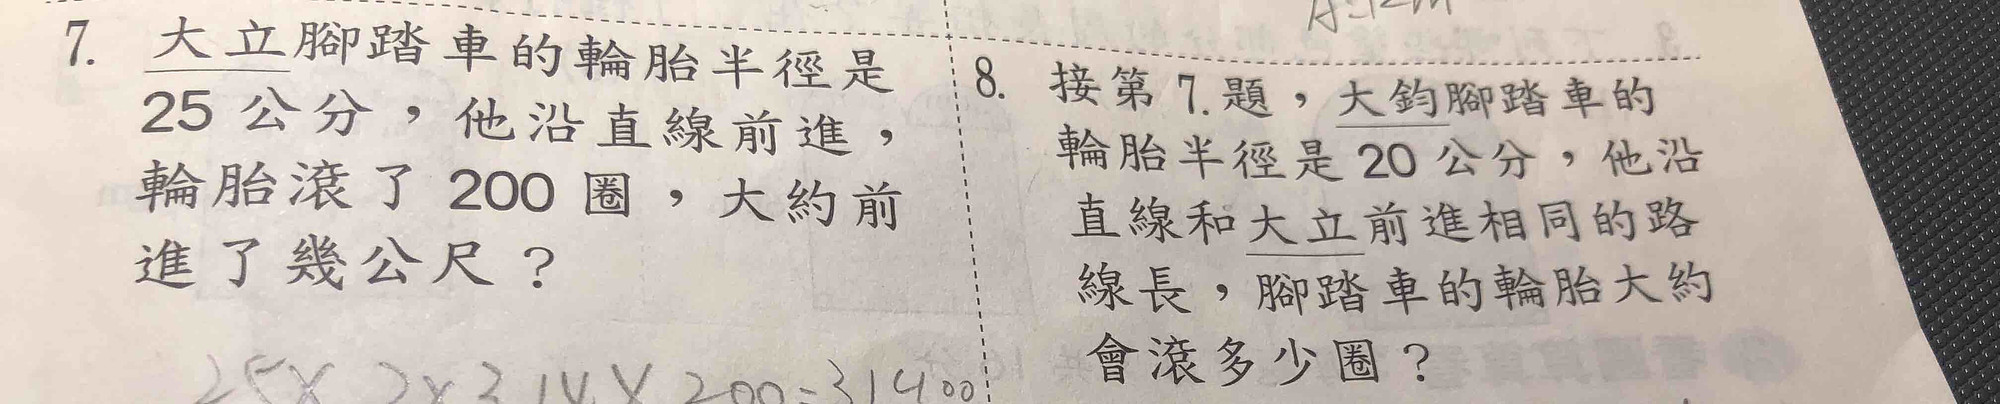 7. 大立腳踏車的輪胎半徑是
25 公分，他沿直線前進，
輪胎滾了 200 圈，大約前
進了幾公尺？
25×2×3.14×200=31400
8. 接第 7. 題，大鈞腳踏車的
輪胎半徑是 20 公分，他沿
直線和大立前進相同的路
線長，腳踏車的輪胎大約
會滾多少圈？